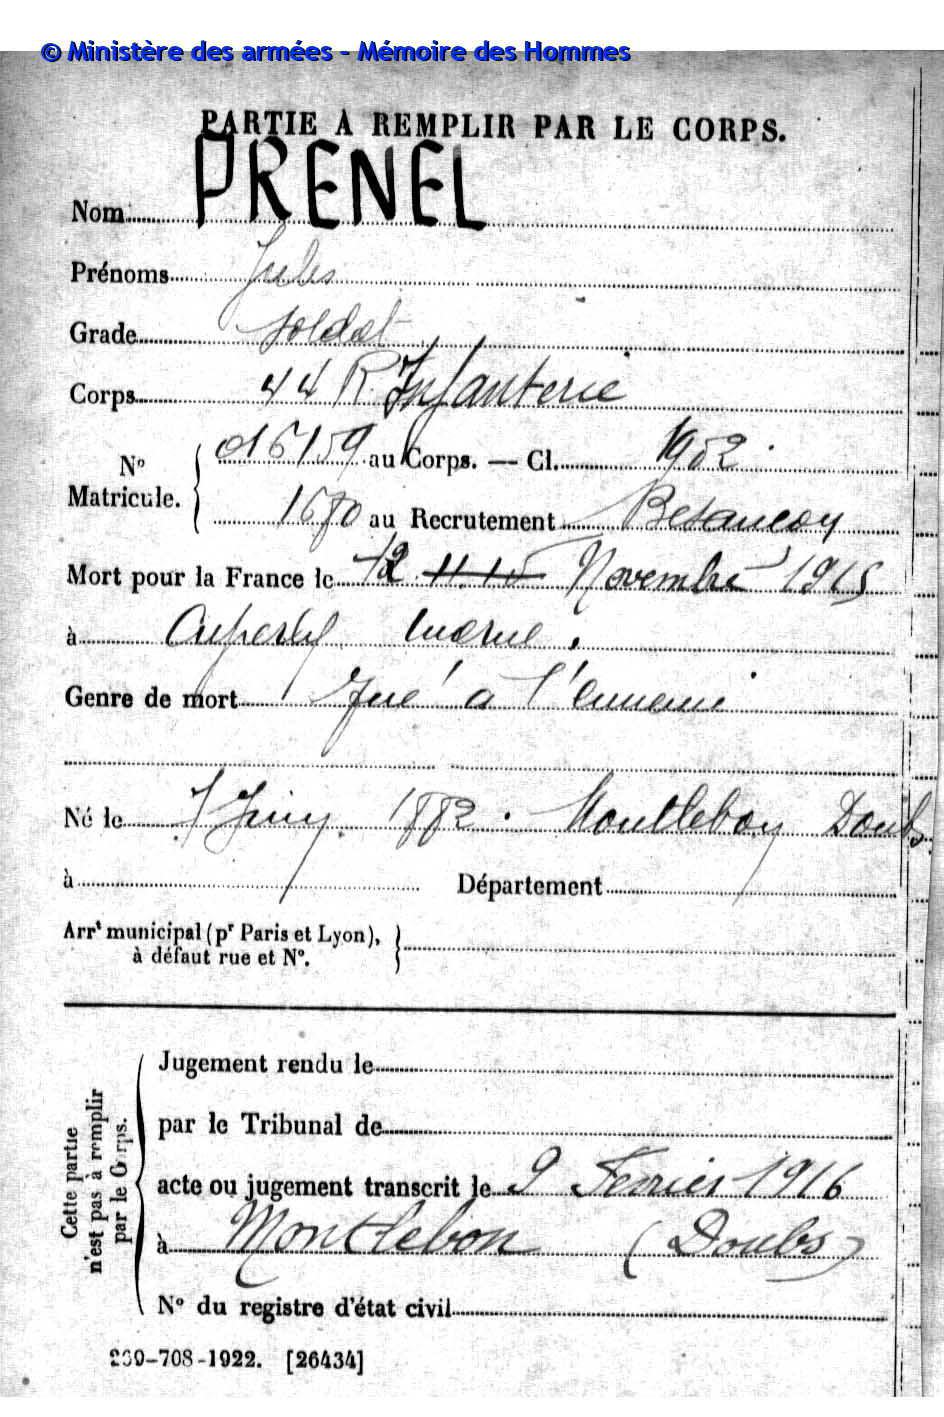 © Ministère des armées - Mémoire des Hommes
PARTIE À REMPLIR PAR LE CORPS.
Nom PRENEL
Prénoms Jules
Grade Soldat
Corps 44 R. Infanterie
Nº Matricule. 016159 au Corps. — Cl. 1902
1680 au Recrutement Besançon
Mort pour la France le 12 11 15 Novembre 1915
à Cuperly Marne.
Genre de mort Tué à l'ennemi
Né le 1882. Montlebon Doubs.
à Département
Arrt municipal (pr Paris et Lyon),
à défaut rue et Nº.
Cette partie
n'est pas à remplir
par le Corps.
Jugement rendu le
par le Tribunal de
acte ou jugement transcrit le 9 Fevrier 1916
à Montlebon (Doubs)
Nº du registre d'état civil
-708-1922. [26434]